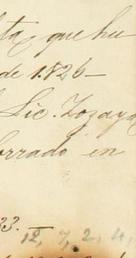 ta, que hu
de 1826-
Lic. Zozaya
orrado en
33. -
12, 7, 2, 4,